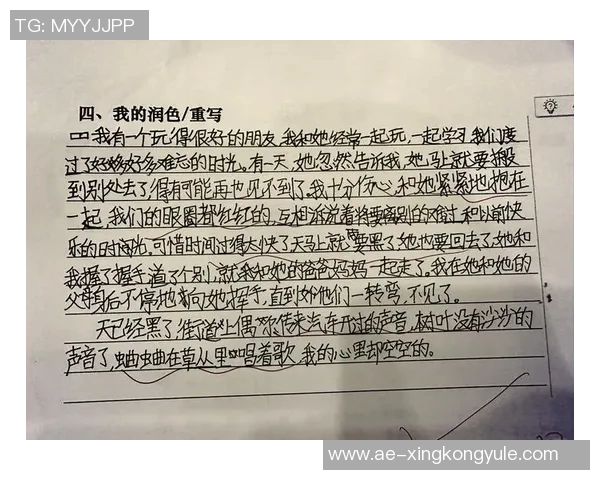 TG: MYYJJPP
四、我的润色/重写
我有一个玩得很好的朋友,我和她经常一起玩,一起学习,我们度
过了好多好多难忘的时光。有一天,她忽然告诉我,她马上就要搬
到别处去了,得有可能再也见不到了,我十分伤心,和她紧紧地抱在
一起,我们的眼圈都红红的,互相诉说着将要离别的难过和以前快
乐的时光。可惜时间过得太快了天马上就要黑了,她也要回去了,她和
我握了握手,道了个别,就和她的爸爸妈妈一起走了。我在她和她的
父母身后不停地向她挥手,直到他们一转弯,不见了。
天已经黑了,街道上偶尔传来汽车开过的声音,树叶没有沙沙的
声音了,蛐蛐在草丛里唱着歌,我的心里却空空的。
www.ae-xingkongyule.com